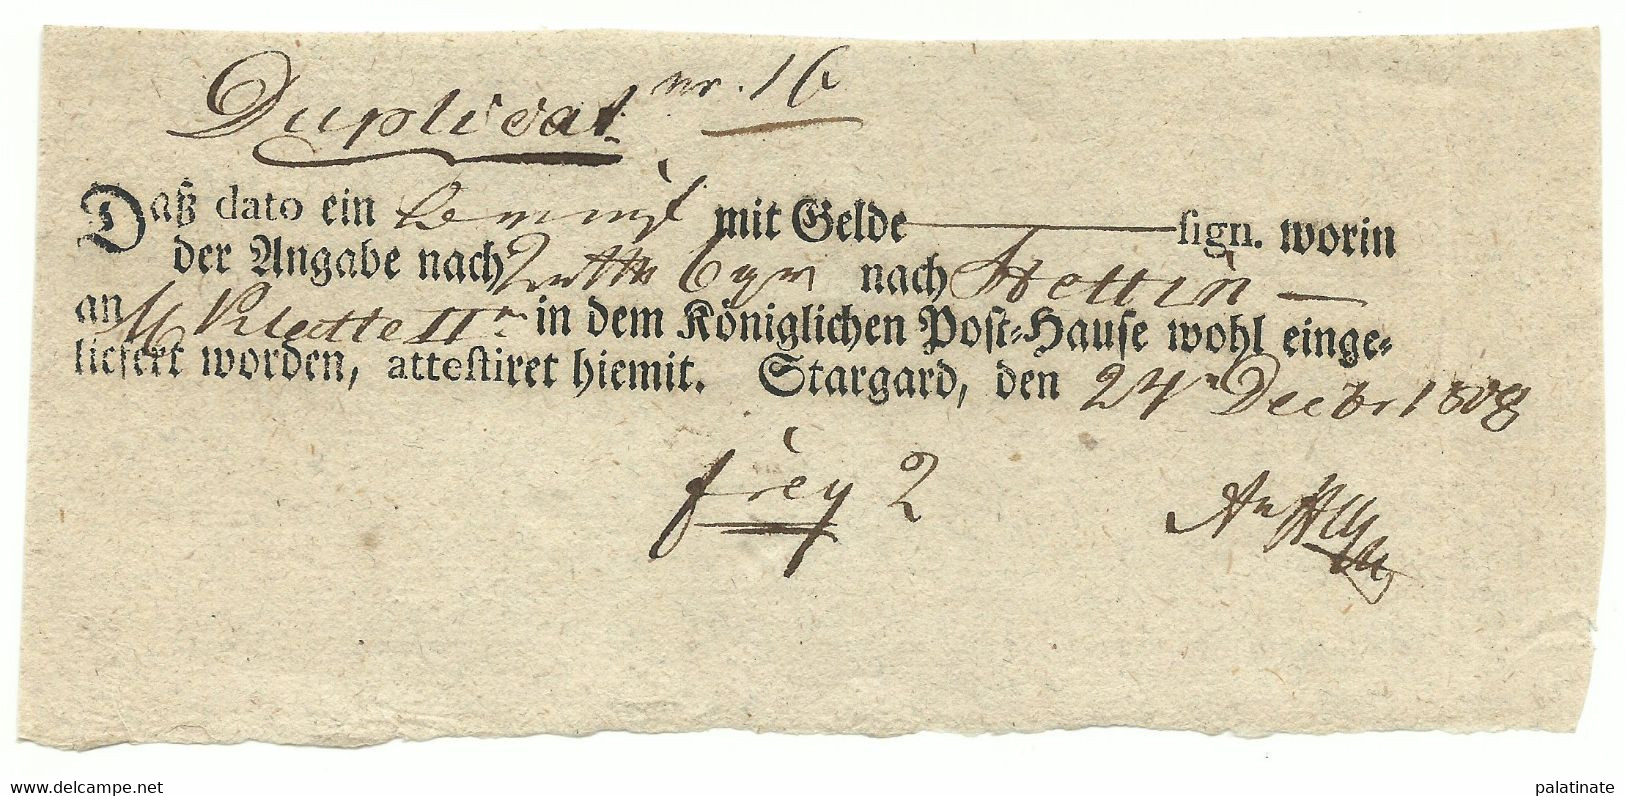 Duplicat nr. 16
Daß dato ein mit Gelde sign. worin
der Angabe nach nach Stettin
an in dem Königlichen Post-Hause wohl einge-
liefert worden, attestiret hiemit. Stargard, den 24 Decbr 1808
frey 2
delcampe.net
palatinate